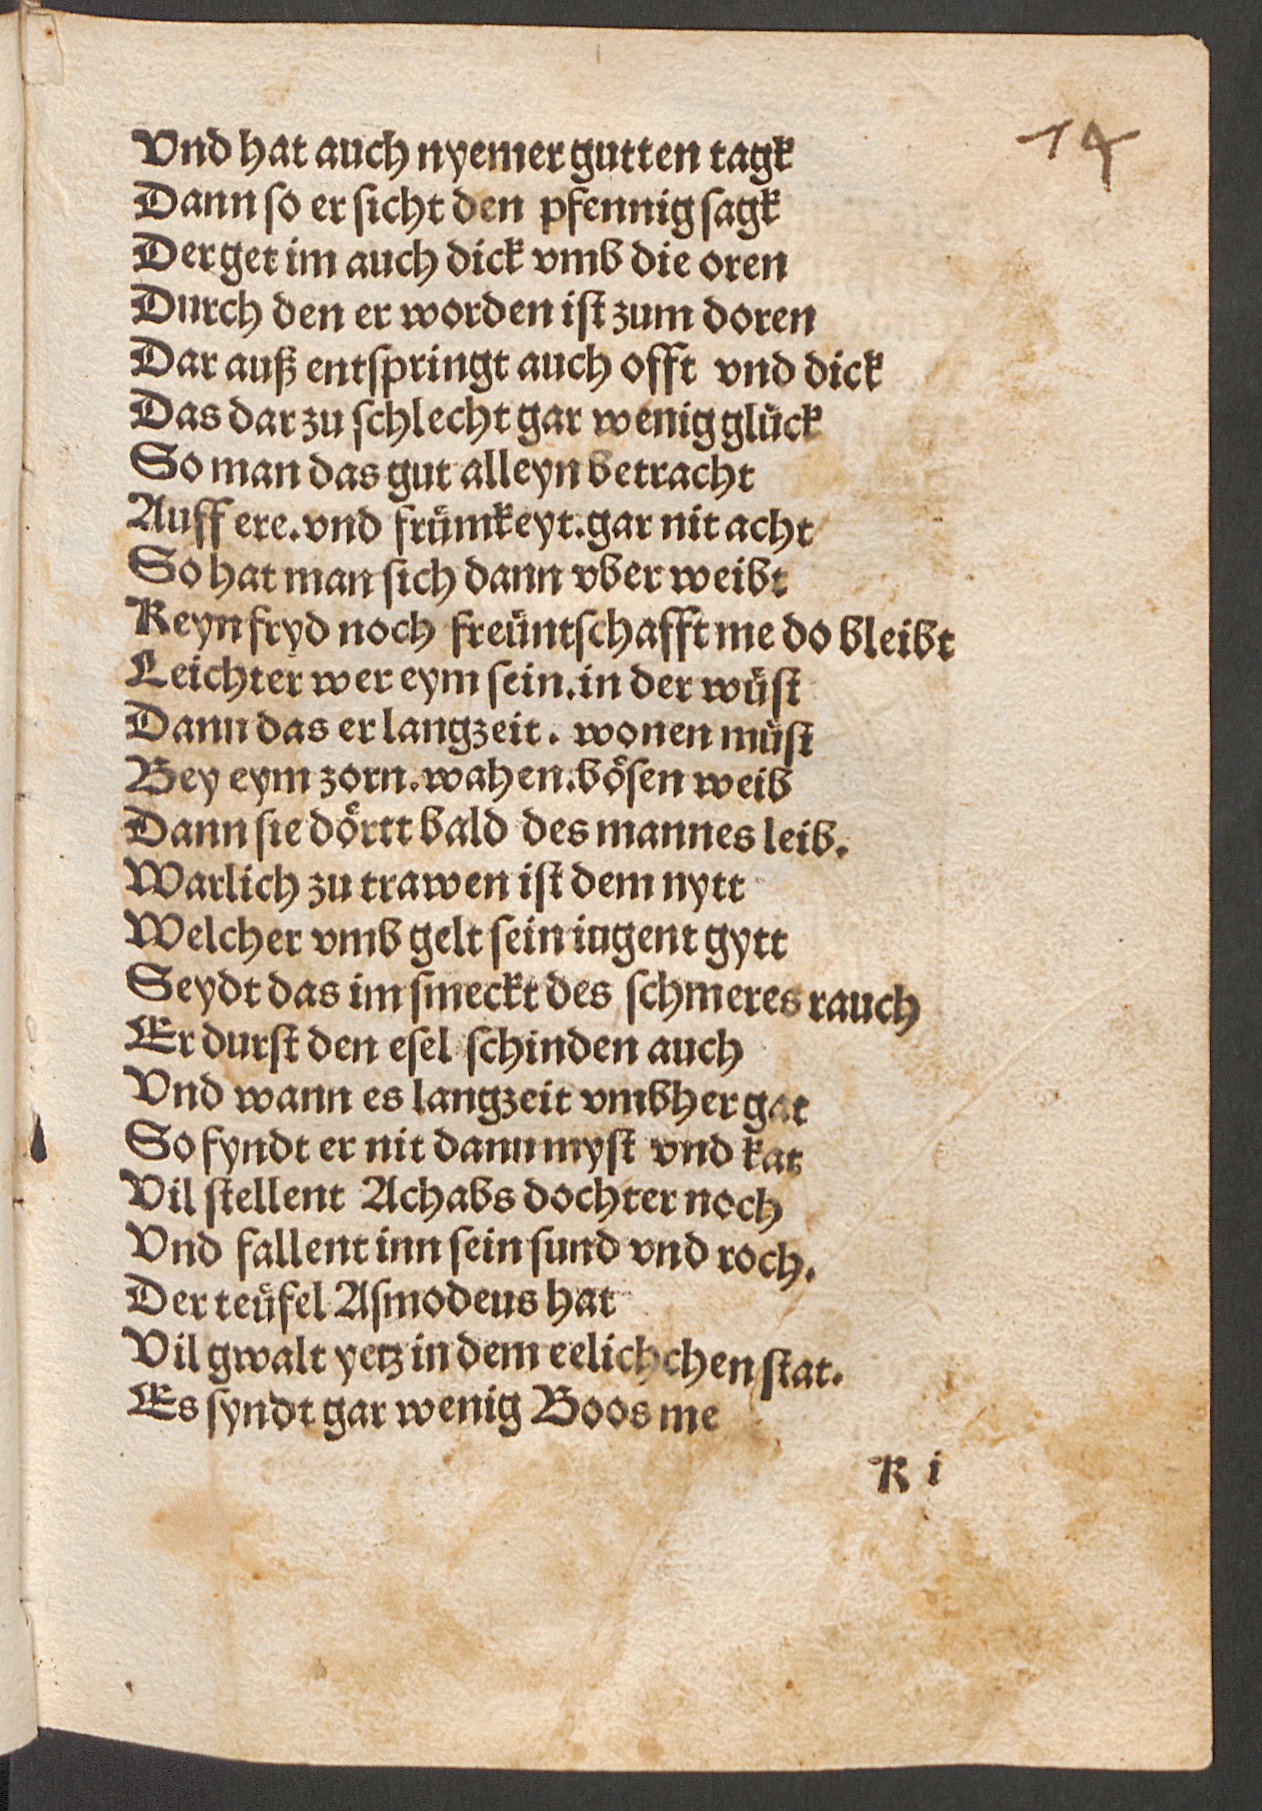 14
Vnd hat auch nyemer gutten tagk
Dann so er sicht den pfennig sagk
Der get im auch dick vmb die oren
Durch den er worden ist zum doren
Dar auß entspringt auch offt vnd dick
Das dar zu schlecht gar wenig glück
So man das gut alleyn betracht
Auff ere. vnd frümkeyt. gar nit acht
So hat man sich dann vber weibt
Keyn fryd noch freüntschafft me do bleibt
Leichter wer eym sein. in der wüst
Dann das er langzeit. wonen müst
Bey eym zorn. wahen. bösen weib
Dann sie dörtt bald des mannes leib.
Warlich zu trawen ist dem nytt
Welcher vmb gelt sein iugent gytt
Seydt das im smeckt des schmeres rauch
Er durst den esel schinden auch
Vnd wann es langzeit vmbher gat
So fyndt er nit dann myst vnd kat
Vil stellent Achabs dochter noch
Vnd fallent inn sein sund vnd roch.
Der teüfel Asmodeus hat
Vil gwalt yetz in dem eelichchen stat.
Es syndt gar wenig Boos me
K i